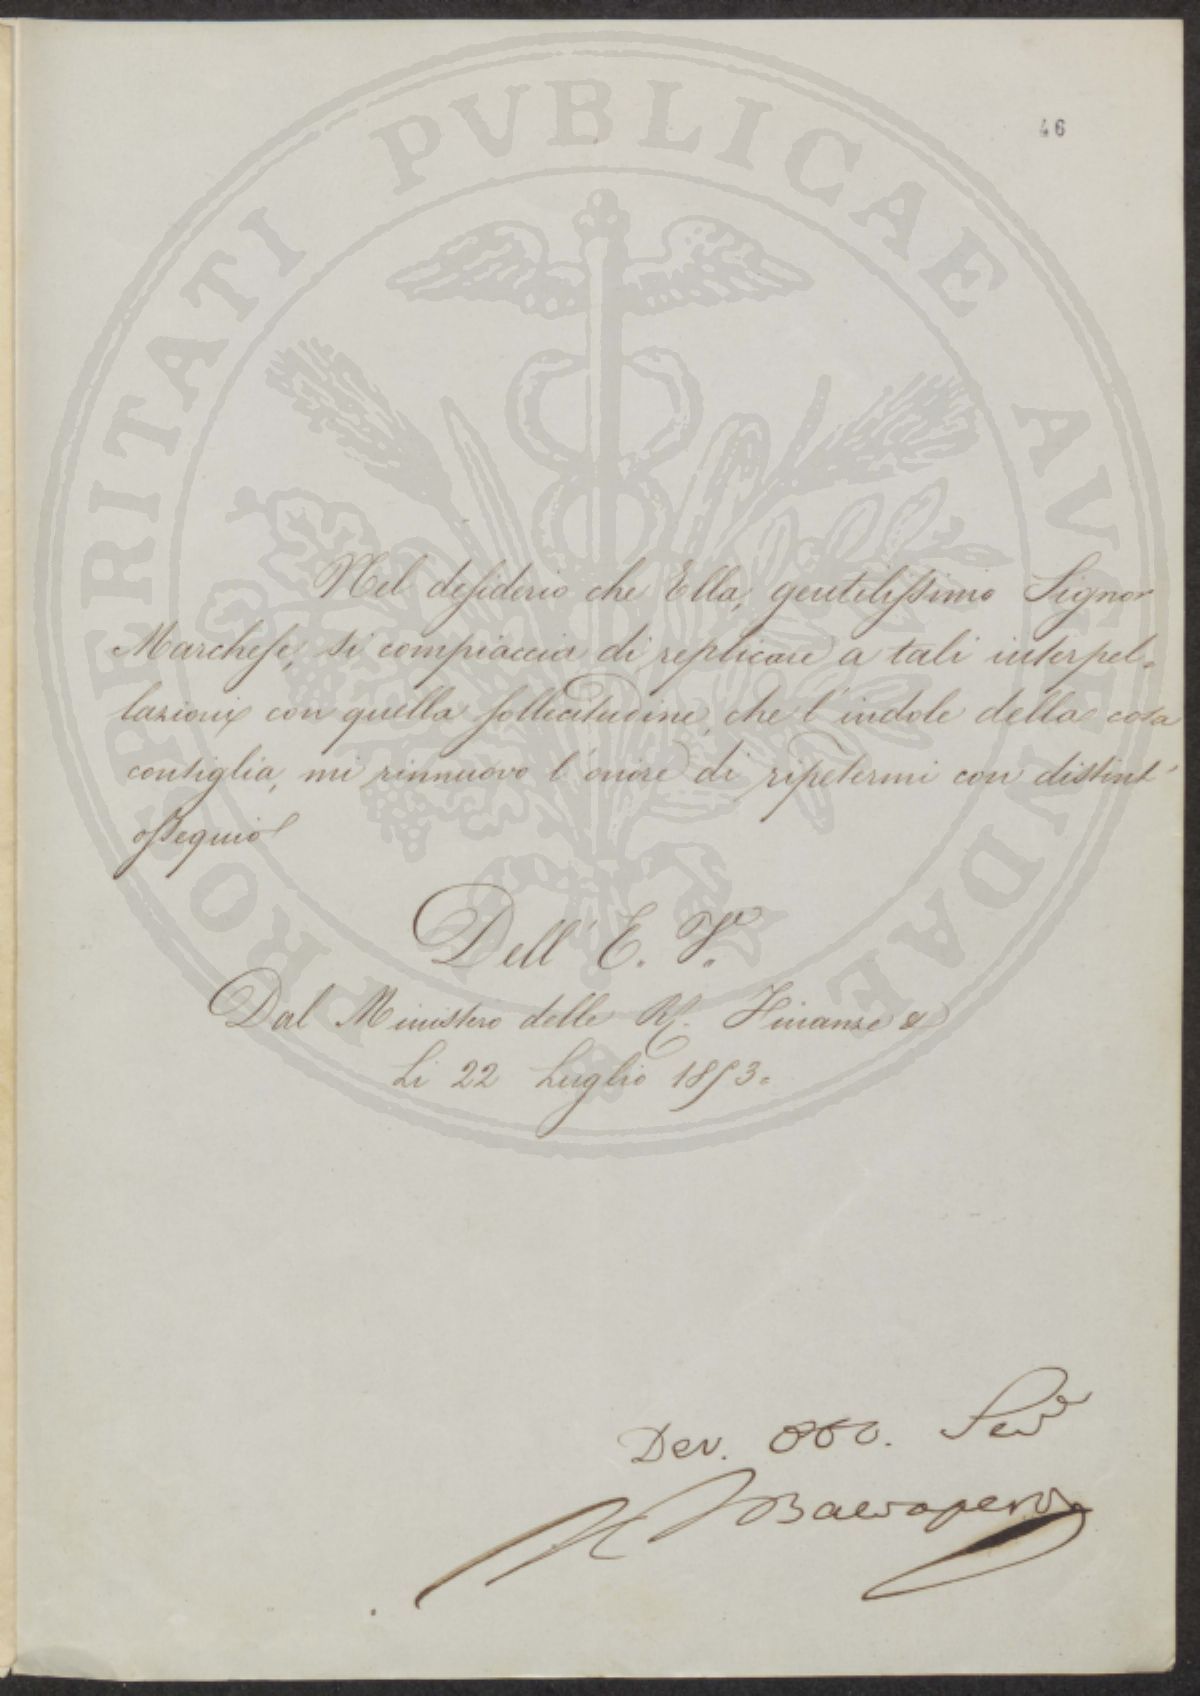 46
PROSPERITATI PUBLICAE AUGENDAE
Nel desiderio che Ella, gentilissimo Signor
Marchese, si compiaccia di replicare a tali interpel=
lazioni con quella sollecitudine, che l'indole della cosa
consiglia, mi rinnuovo l'onore di ripetermi con distint'
ossequio
Dell' E. V.
Dal Ministero delle RR. Finanze &
Li 22 Luglio 1853.
Dev. Obb. Ser